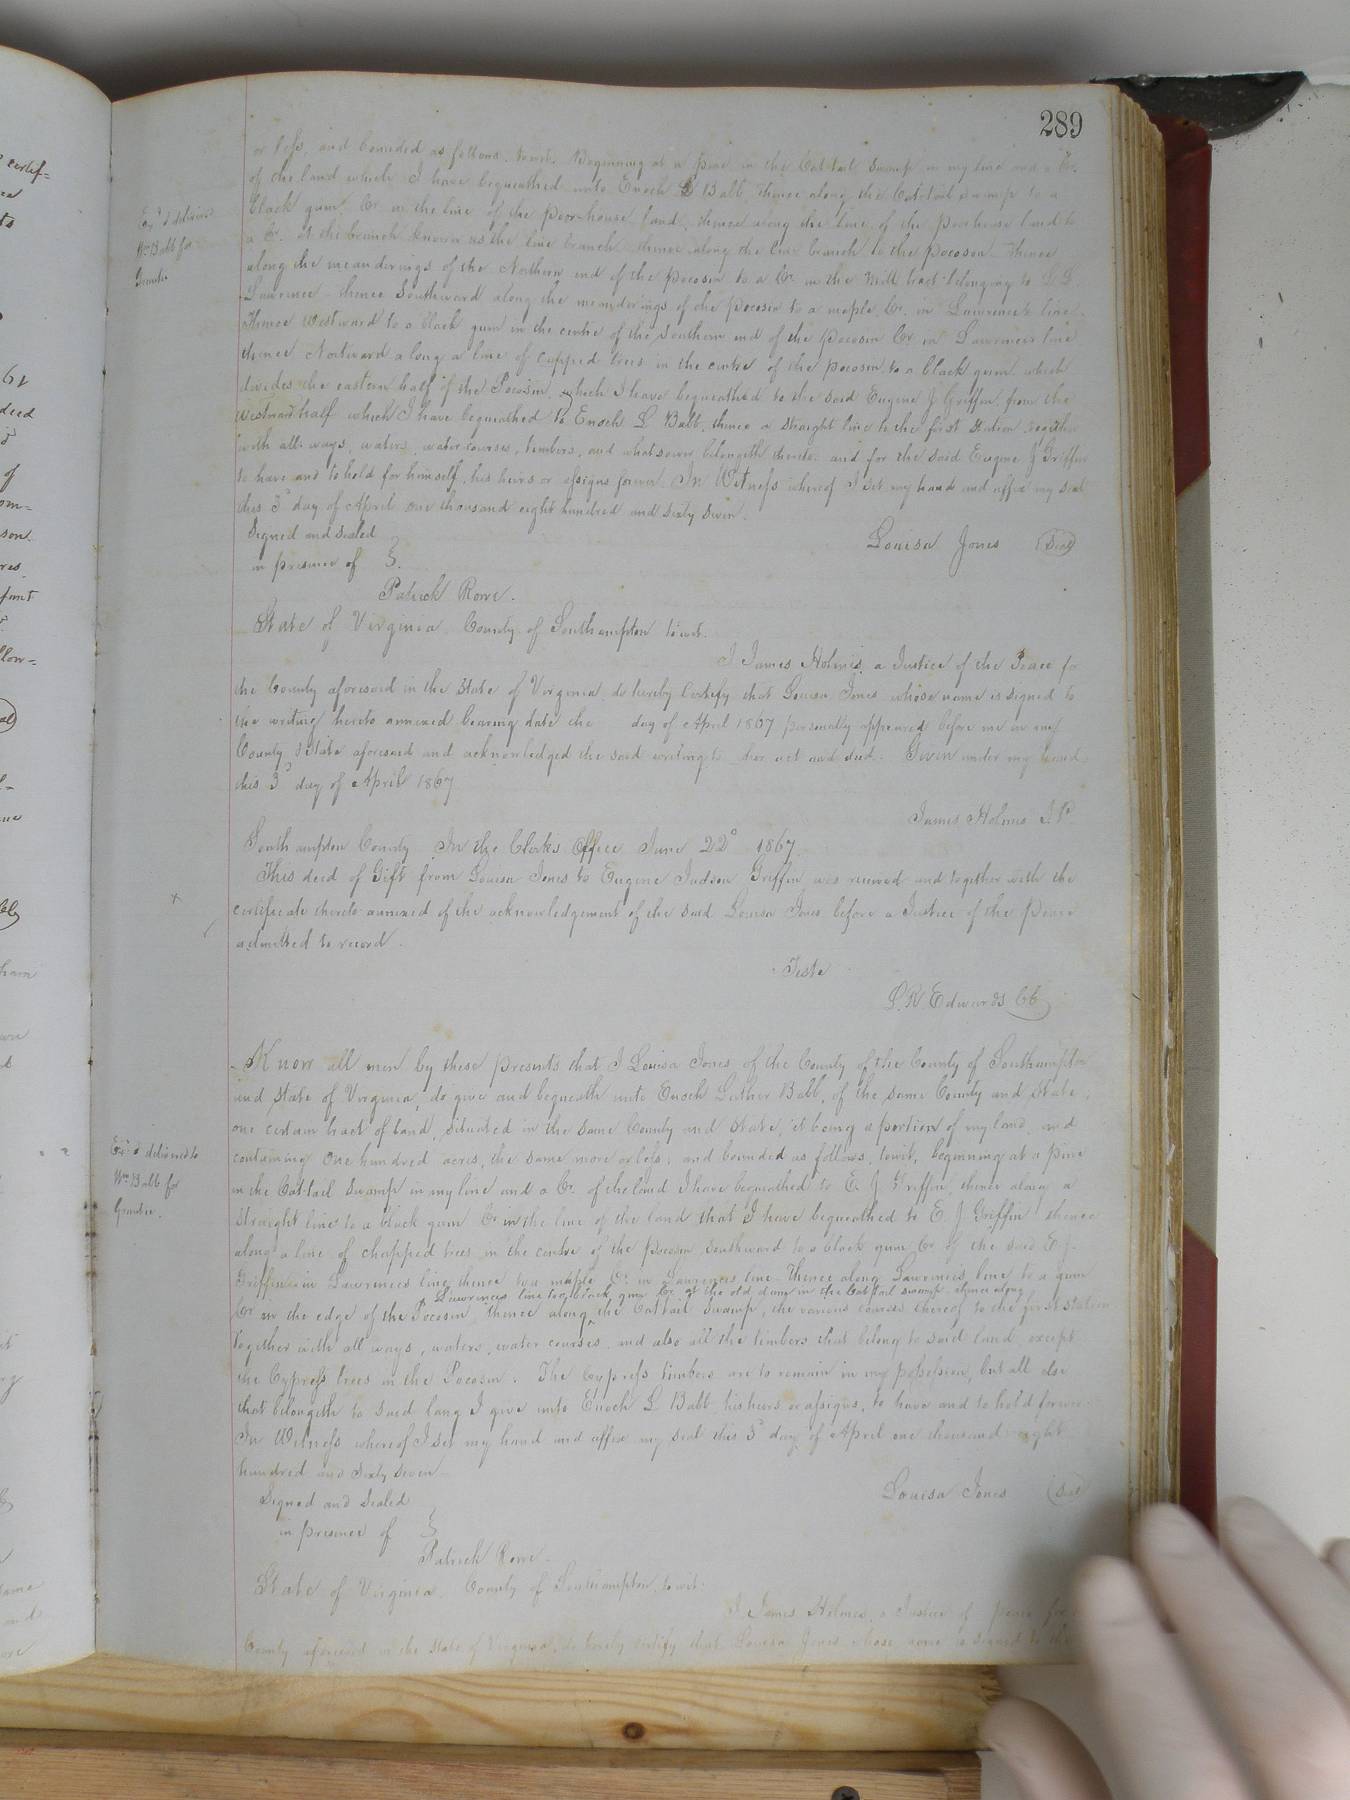 289
or less, and bounded as follows, towit. Beginning at a pine in the Cat-tail Swamp in my line and a Cr.
of the land which I have bequeathed unto Enoch L Babb thence along the Cat-tail Swamp to a
black gum, Cr. in the line of the poor-house land, thence along the line of the poorhouse land to
a Cr. at the branch known as the line branch thence along the line branch to the pocoson. Thence
along the meanderings of the Northern end of the pocosin to a Cr. in the Mill tract belonging to
Lawrence thence Southward along the meanderings of the pocosin to a maple Cr. in Lawrence's line.
Thence Westward to a black gum in the centre of the Southern end of the pocosin Cr. in Lawrences line
thence Northward along a line of chopped trees in the centre of the pocosin, to a black gum which
divides the eastern half of the Pocosin, which I have bequeathed to the said Eugene J Griffin, from the
Westward half which I have bequeathed to Enoch L Babb, thence a straight line to the first station together
with all ways, waters, water courses, timbers, and whatsoever belongeth thereto. and for the said Eugene J Griffin
to have and to hold for himself, his heirs or assigns forever. In Witness whereof I set my hand and affix my seal
this 3d day of April one thousand eight hundred and sixty seven.
Signed and sealed
in presence of }
Louisa Jones (Seal)
Patrick Rowe.
State of Virginia County of Southampton towit.
I James Holmes, a Justice of the Peace for
the County aforesaid in the State of Virginia do hereby certify that Louisa Jones whose name is signed to
the writing hereto annexed bearing date the day of April 1867 personally appeared before me in my
County & State aforesaid and acknowledged the said writing to her act and deed. Given under my hand
this 3d day of April 1867
James Holmes J.P.
Southampton County In the Clerks Office June 22d 1867.
This deed of Gift from Louisa Jones to Eugene Judson Griffin was received and together with the
certificate thereto annexed of the acknowledgement of the said Louisa Jones before a Justice of the Peace
admitted to record.
Teste
L.R. Edwards CC
Know all men by these presents that I Louisa Jones of the County of the County of Southampton
and State of Virginia, do give and bequeath unto Enoch Luther Babb, of the same County and State,
one certain tract of land, situated in the same County and State, it being a portion of my land, and
containing One hundred acres, the same more or less, and bounded as follows, towit, beginning at a pine
in the Cat-tail Swamp in my line and a Cr. of the land I have bequeathed to E. J. Griffin, thence along a
straight line to a black gum Cr. in the line of the land that I have bequeathed to E J Griffin thence
along a line of chopped trees in the centre of the pocosin, Southward to a black gum Cr. of the said E J.
Griffins in Lawrences line, thence to a maple Cr. in Lawrences line. Thence along Lawrences line to a gum
Lawrences line to a black gum Cr. at the old dam in the Cat tail swamp. thence along
Cr. in the edge of the Pocosin, thence along the Cat tail Swamp, the various courses thereof to the first station
Together with all ways, waters, water courses, and also all the timbers that belong to said land except
the Cypress trees in the Pocosin. The Cypress timbers are to remain in my possession, but all else
that belongeth to said lang I give unto Enoch L Babb, his heirs or assigns, to have and to hold forever
In Witness whereof I set my hand and affix my seal this 3d day of April one thousand eight
hundred and sixty seven
Signed and Sealed
in presence of }
Louisa Jones (Seal)
Patrick Rowe.
State of Virginia County of Southampton, towit.
I James Holmes, a Justice of peace for
County aforesaid in the State of Virginia, do hereby certify that Louisa Jones whose name is signed to the
Exd & delivered
Wm Babb for
Grantee
Exd & delivered to
Wm Babb for
Grantee.